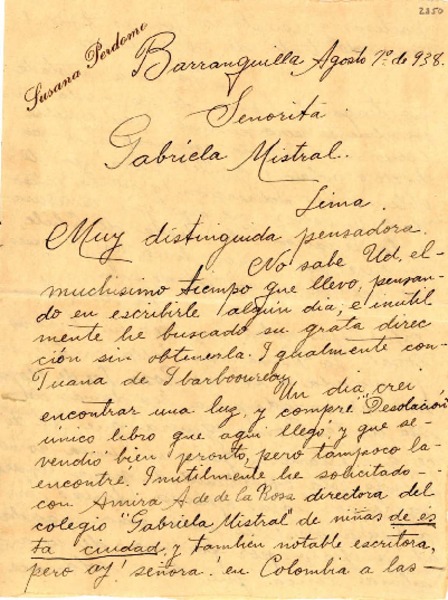 2350
Susana Perdomo
Barranquilla Agosto 7º de 938.
Señorita
Gabriela Mistral.
Lima.
Muy distinguida pensadora.
No sabe Ud. el-
muchisimo tiempo que llevo, pensan-
do en escribirle algún dia; e inutil
mente he buscado su grata direc
ción sin obtenerla. Igualmente con-
Juana de Ibarbooureau
Un dia, crei
encontrar una luz, y compré "Desolación
único libro que aqui llegó y que se-
vendió bien pronto, pero tampoco la-
encontré. Inutilmente he solicitado-
con Amira A de de la Rosa directora del
colegio "Gabriela Mistral" de niñas de es
ta ciudad, y tambien notable escritora,
pero ay! señora! en Colombia a las-